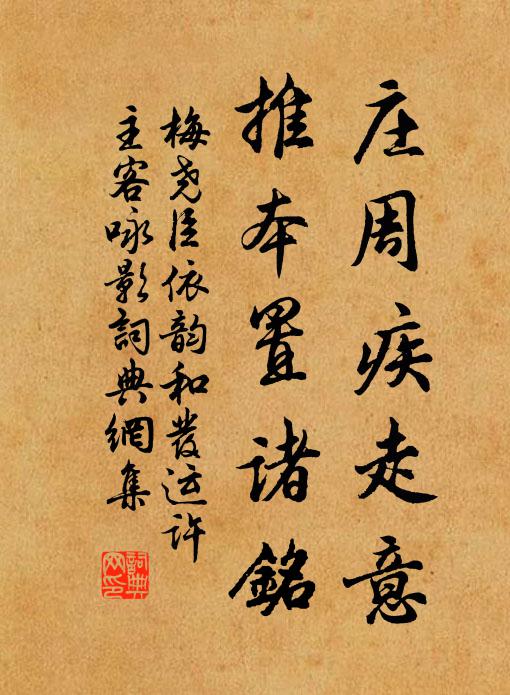 庄周疾走意
推本置诸铭
梅尧臣依韵和发运许
主客咏影詞典網集
詞典网印